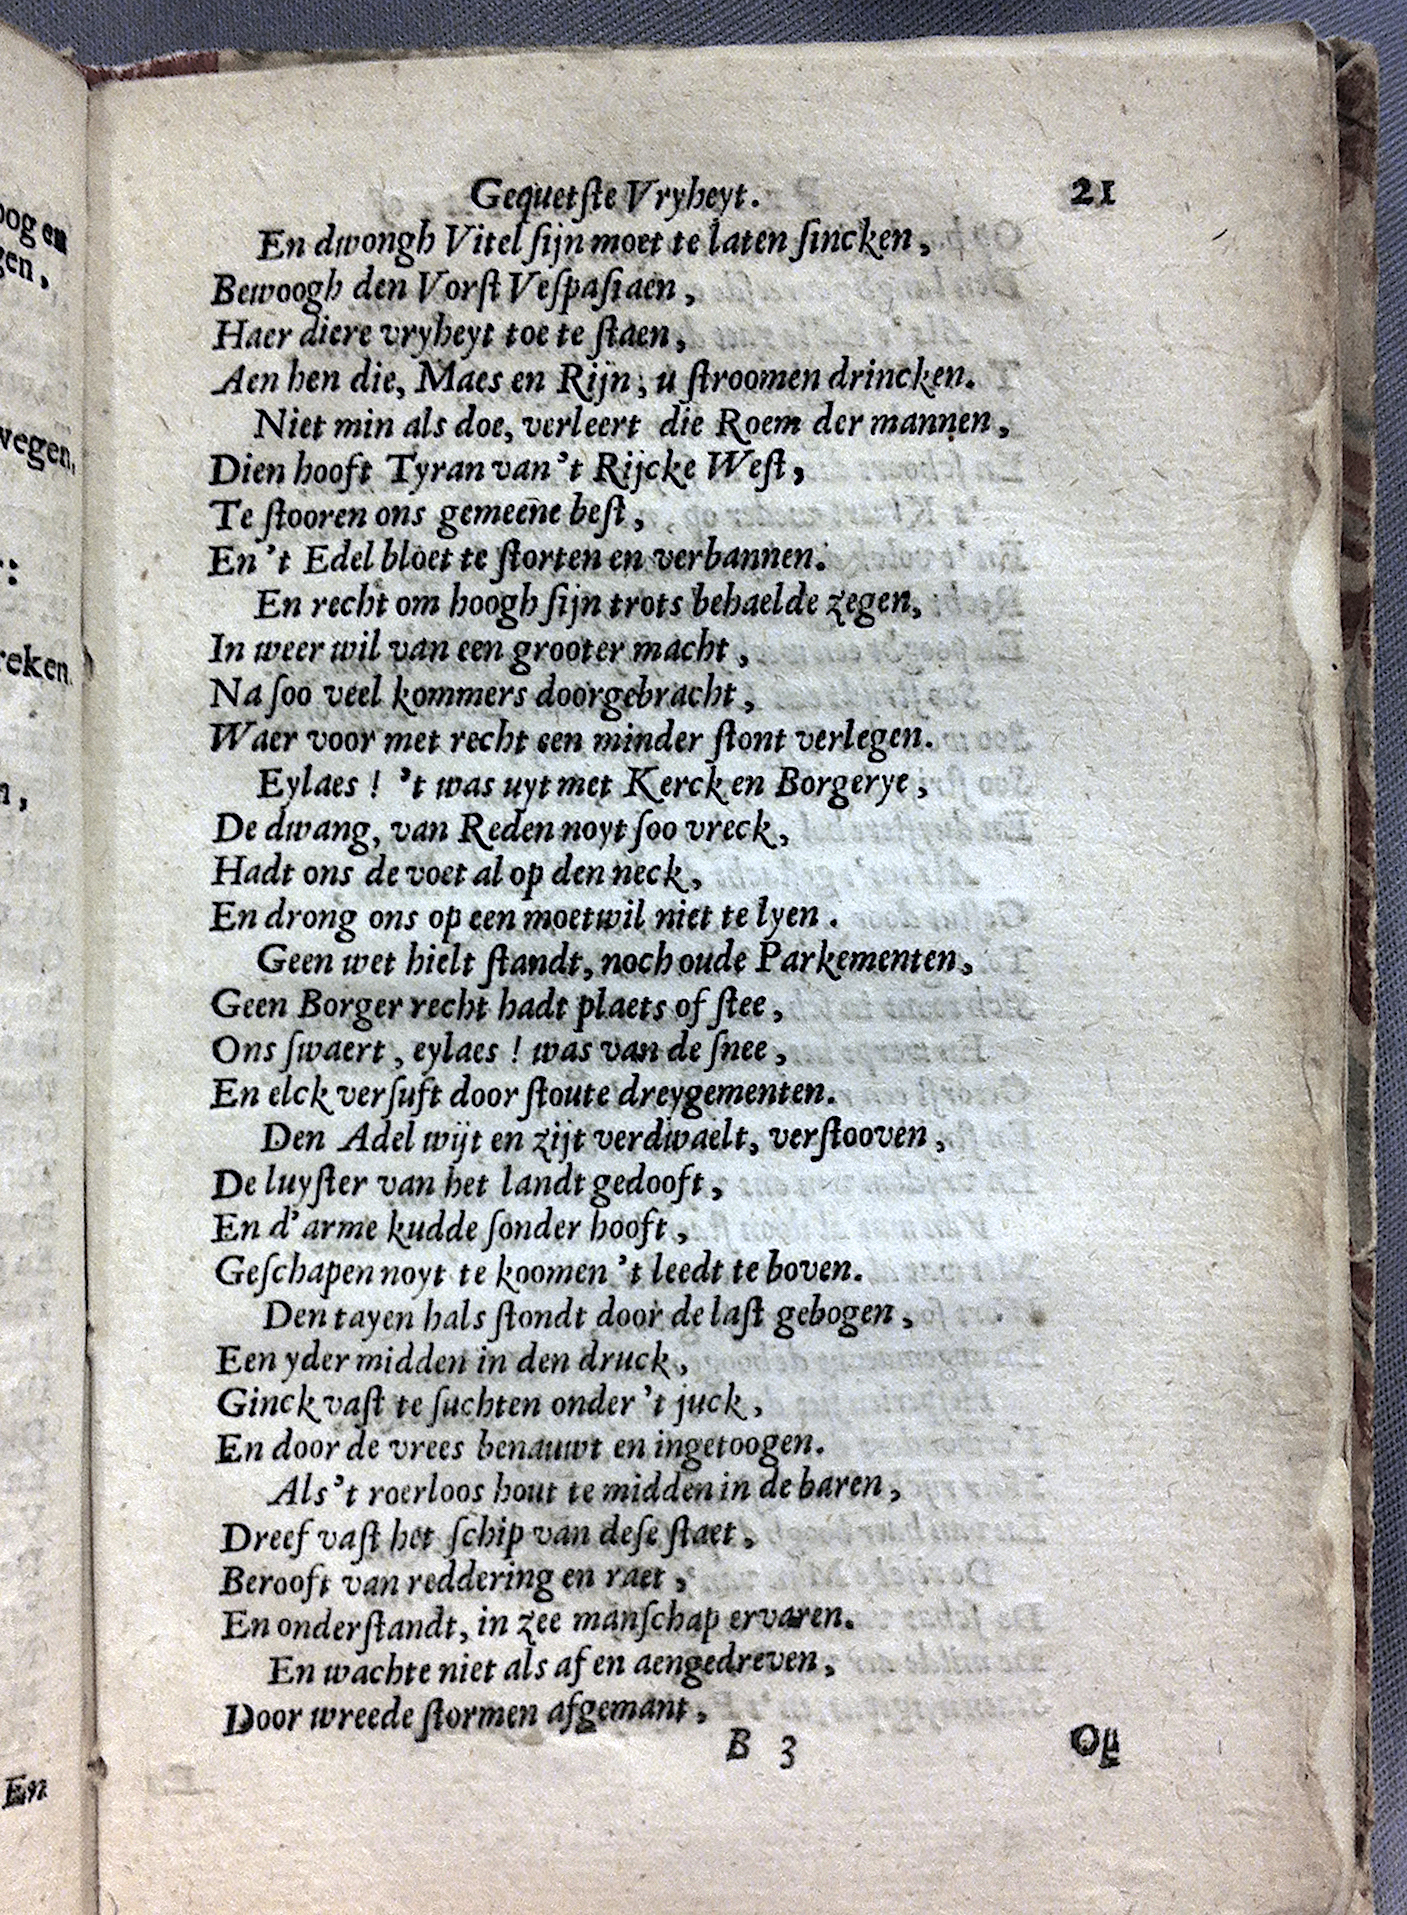 Gequetſte Vryheyt. 21
En dwongh Vitel ſijn moet te laten ſincken,
Bewoogh den Vorſt Veſpaſiaen,
Haer diere vryheyt toe te ſtaen,
Aen hen die, Maes en Rijn, u ſtroomen drincken.
Niet min als doe, verleert die Roem der mannen,
Dien hooft Tyran van 't Rijcke Weſt,
Te ſtooren ons gemeēne beſt,
En 't Edel bloet te ſtorten en verbannen.
En recht om hoogh ſijn trots behaelde zegen,
In weer wil van een grooter macht,
Na ſoo veel kommers doorgebracht,
Waer voor met recht een minder ſtont verlegen.
Eylaes ! 't was uyt met Kerck en Borgerye,
De dwang, van Reden noyt ſoo vreck,
Hadt ons de voet al op den neck,
En drong ons op een moetwil niet te lyen.
Geen wet hielt ſtandt, noch oude Parkementen,
Geen Borger recht hadt plaets of ſtee,
Ons ſwaert, eylaes ! was van de ſnee,
En elck verſuft door ſtoute dreygementen.
Den Adel wijt en zijt verdwaelt, verſtooven,
De luyſter van het landt gedooft,
En d'arme kudde ſonder hooft,
Geſchapen noyt te koomen 't leedt te boven.
Den tayen hals ſtondt door de laſt gebogen,
Een yder midden in den druck,
Ginck vaſt te ſuchten onder 't juck,
En door de vrees benauwt en ingetoogen.
Als 't roerloos hout te midden in de baren,
Dreef vaſt het ſchip van deſe ſtaet,
Berooft van reddering en raet,
En onderſtandt, in zee manſchap ervaren.
En wachte niet als af en aengedreven,
Door wreede ſtormen afgemant,
B 3 Op
oog en
gen,
wegen,
:
reken.
n,
En